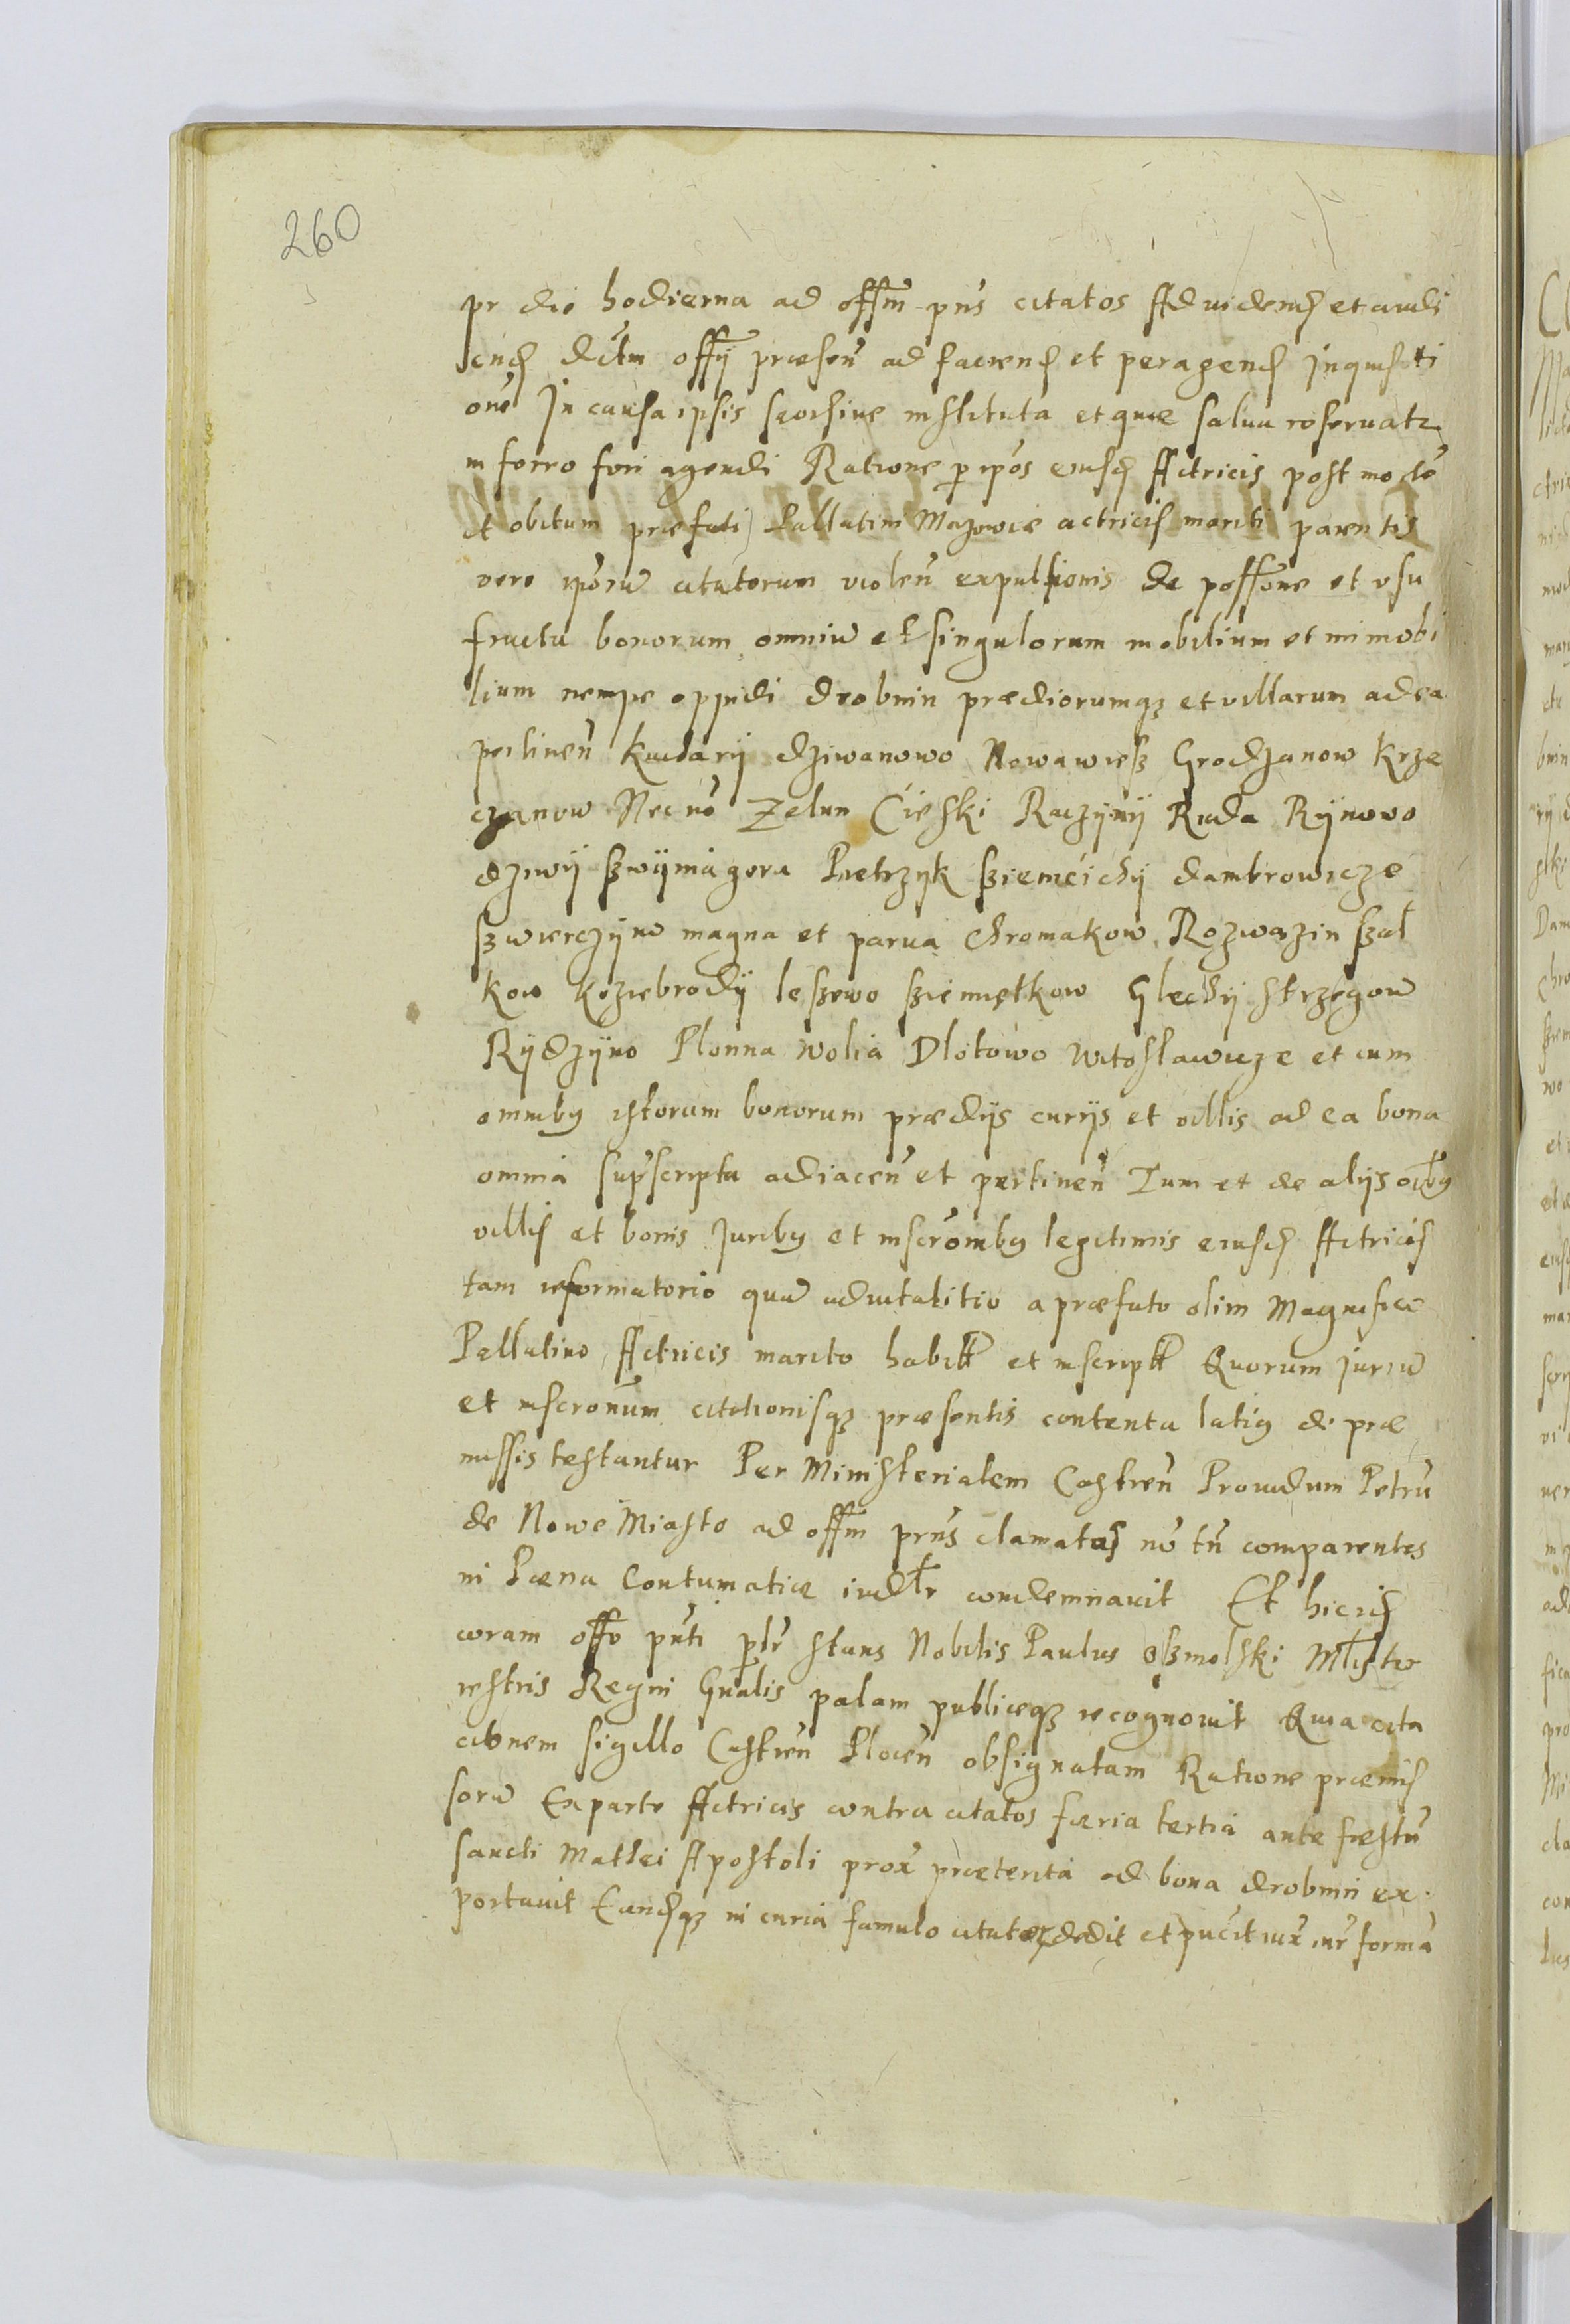 260
pr die hodierna ad offm pns citatos Ad videnḍ et audi
enḍ dictm offÿ præseñ ad faciend et peragend Inquisiti
one In causa ipsis seorsive instituta et quæ salva reservatr
in ferro fori agendi Ratione p ipos eiusd Actricis post morte
et obitum præfati Pallatini Mazowiæ actricis mariti parentis
vero ipŏru citatorum violeñ expulsionis de possone et usu
fructu bonorum omniu et singulorum mobilium et immobi
lium nempe oppidi drobnin prædiorumqz et villarum ad ea
pertineñ kuchary dziwanowo Nowawiesz Grodzanow krze
czanow Nec no Zelun Cieski Raczÿnÿ Ruda Rÿnowo
dziwÿ szwÿniagora Pietrzyk sziemeichÿ dambrowicze
szwierczÿno magna et parva chromakow Rozwazin szal
kow koziebrodÿ leszewo sziemiętkow Glechÿ strzegow
Rÿdzÿno Plonna wolia Dlotowo Witoslawicze et cum
omnibg istorum bonorum prædijs curijs et villis ad ea bona
omnia suprscripta adiaceñ et pertineñ Tum et de alijs oibg
villis et bonis Juribg et inscrombg legitimis eiusd Actricis
tam reformatorio qua advitalitio a præfato olim Magnifico
Pallatino Actricis marito habitt et inscriptt Quorum Juriu
et inscronum citationisqz præsentis contenta latig de præ
missis testantur Per Ministerialem Castreñ Providum Petru
de Nowe Miasto ad offm prns clamatas no tn comparentes
in Pœna Contumatiæ iudlr condemnavit Et hic id
coram offo pnti plr stans Nobilis Paulus oszmolski Mlist
restris Regni Gnalis palam publiceqz recognovit Quia cita
cionem sigillo Castreñ Ploceñ obsignatam Ratione præmis
soru Ex parte Actricis contra citatos færia tertia ante fæstu
sancti Mattei Apostoli prox præterita ad bona drobnin ex
portavit Eandqz in curia famulo citator dedit et pucit iux iur forma